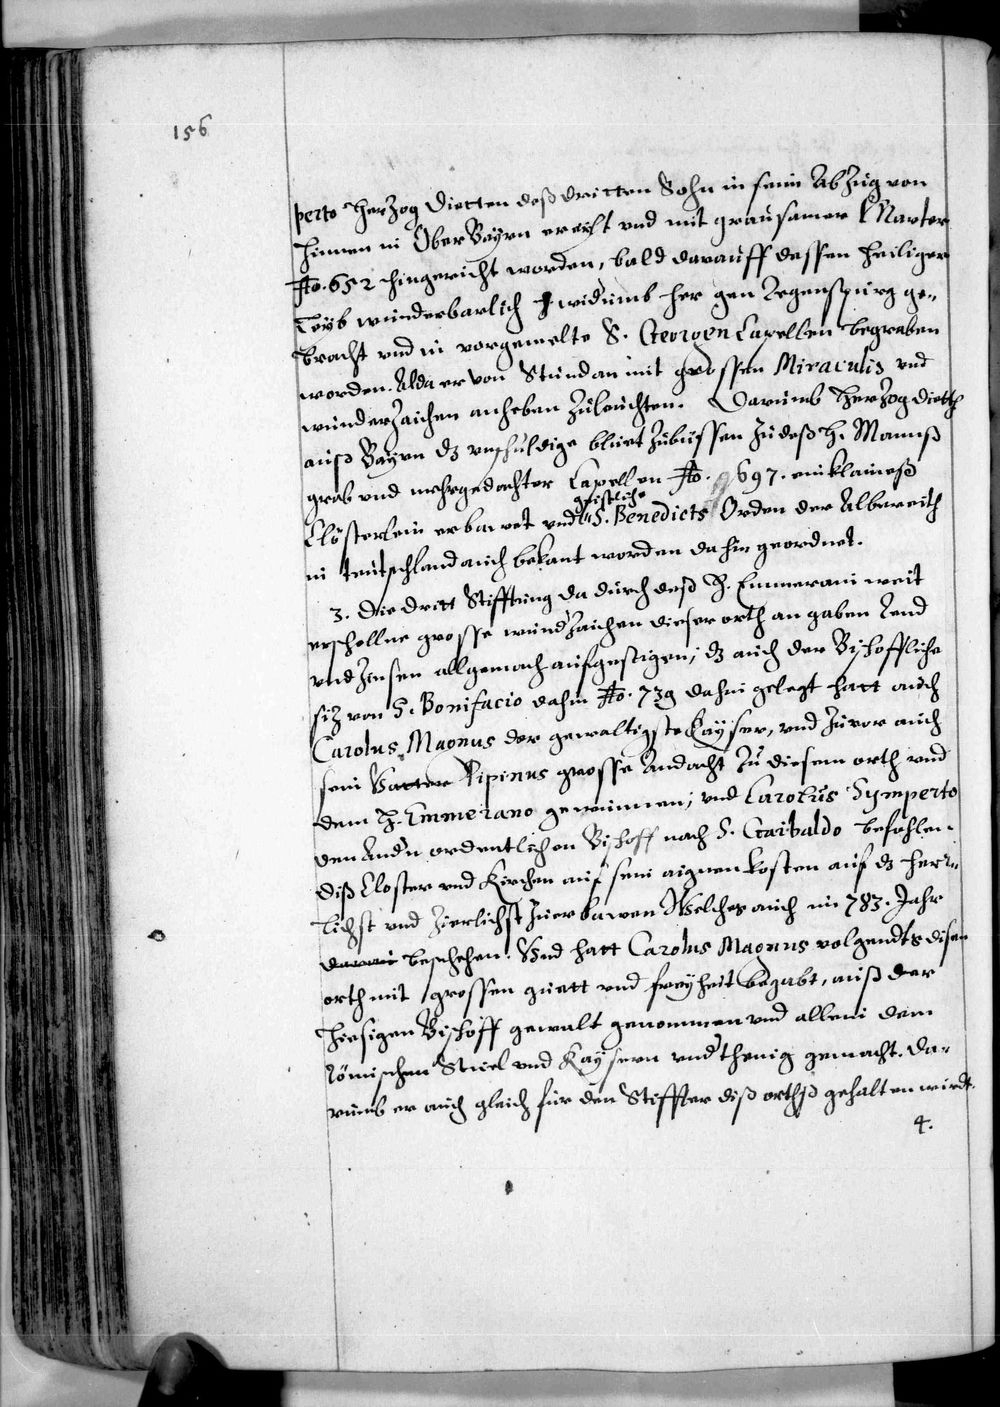 156
perto Herzog Dietten deß dritten Sohn in sein Abzug von
hinnen in Ober Bayrn ereylt und mit grausamer Marter
Ao. 652 hingericht worden, bald darauff dessen heiliger
Leyb wunderbarlich widumb her gen Regenspurg ge-
bracht und in vorgemelte S. Georgen Capellen begraben
worden. Alda er von Stund an mit grossen Miraculis und
wunderzaichen anheben zuleuchten. Darumb Herzog Dieth
auß Bayrn dz unschuldige bluet zubüssen zu deß H. Manns
grab und mehrgedachter Capellen Ao. 697. ein klaineß
Clösterlein erbawet und geistliche S. Benedicts Orden der Albereith
in teutschland auch bekant worden dahin geordnet.
3. Die dritt Stifftung da durch deß H. Emmerani weit
erschollne grosse wundzaichen dieser orth an gaben Rend
und Zinsen allgemach aufgestigen, dz auch der Bischoffliche
siz von S. Bonifacio dahin Ao. 739 dahin gelegt hatt auch
Carolus Magnus der gewaltigste Kayser, und zuvor auch
sein Vatter Pipinus grosse Andacht zu diesem orth und
dem H. Emmerano gewunnen, und Carolus Symperto
den Andn ordentlichen Bischoff nach S. Garibaldo befohlen
diß Closter und Kirchen auf sein aignen kosten auf dz herr-
lichst und zierlichst zuerbawen Welches auch im 783. Jahr
beschehen. Und hatt Carolus Magnus volgendts disen
orth mit grossen guett und freyheit begabt, auß der
hiesigen Bischoff gewalt genommen und allein dem
Römischen Stuel und Kaysern undthenig gemacht. Da-
rumb er auch gleich für den Stiffter diß orthß gehalten wirdt.
4.